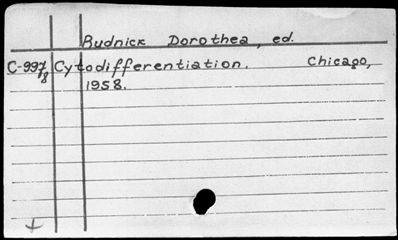 Rudnick Dorothea, ed.
C-997/8 Cytodifferentiation. Chicago,
1958.